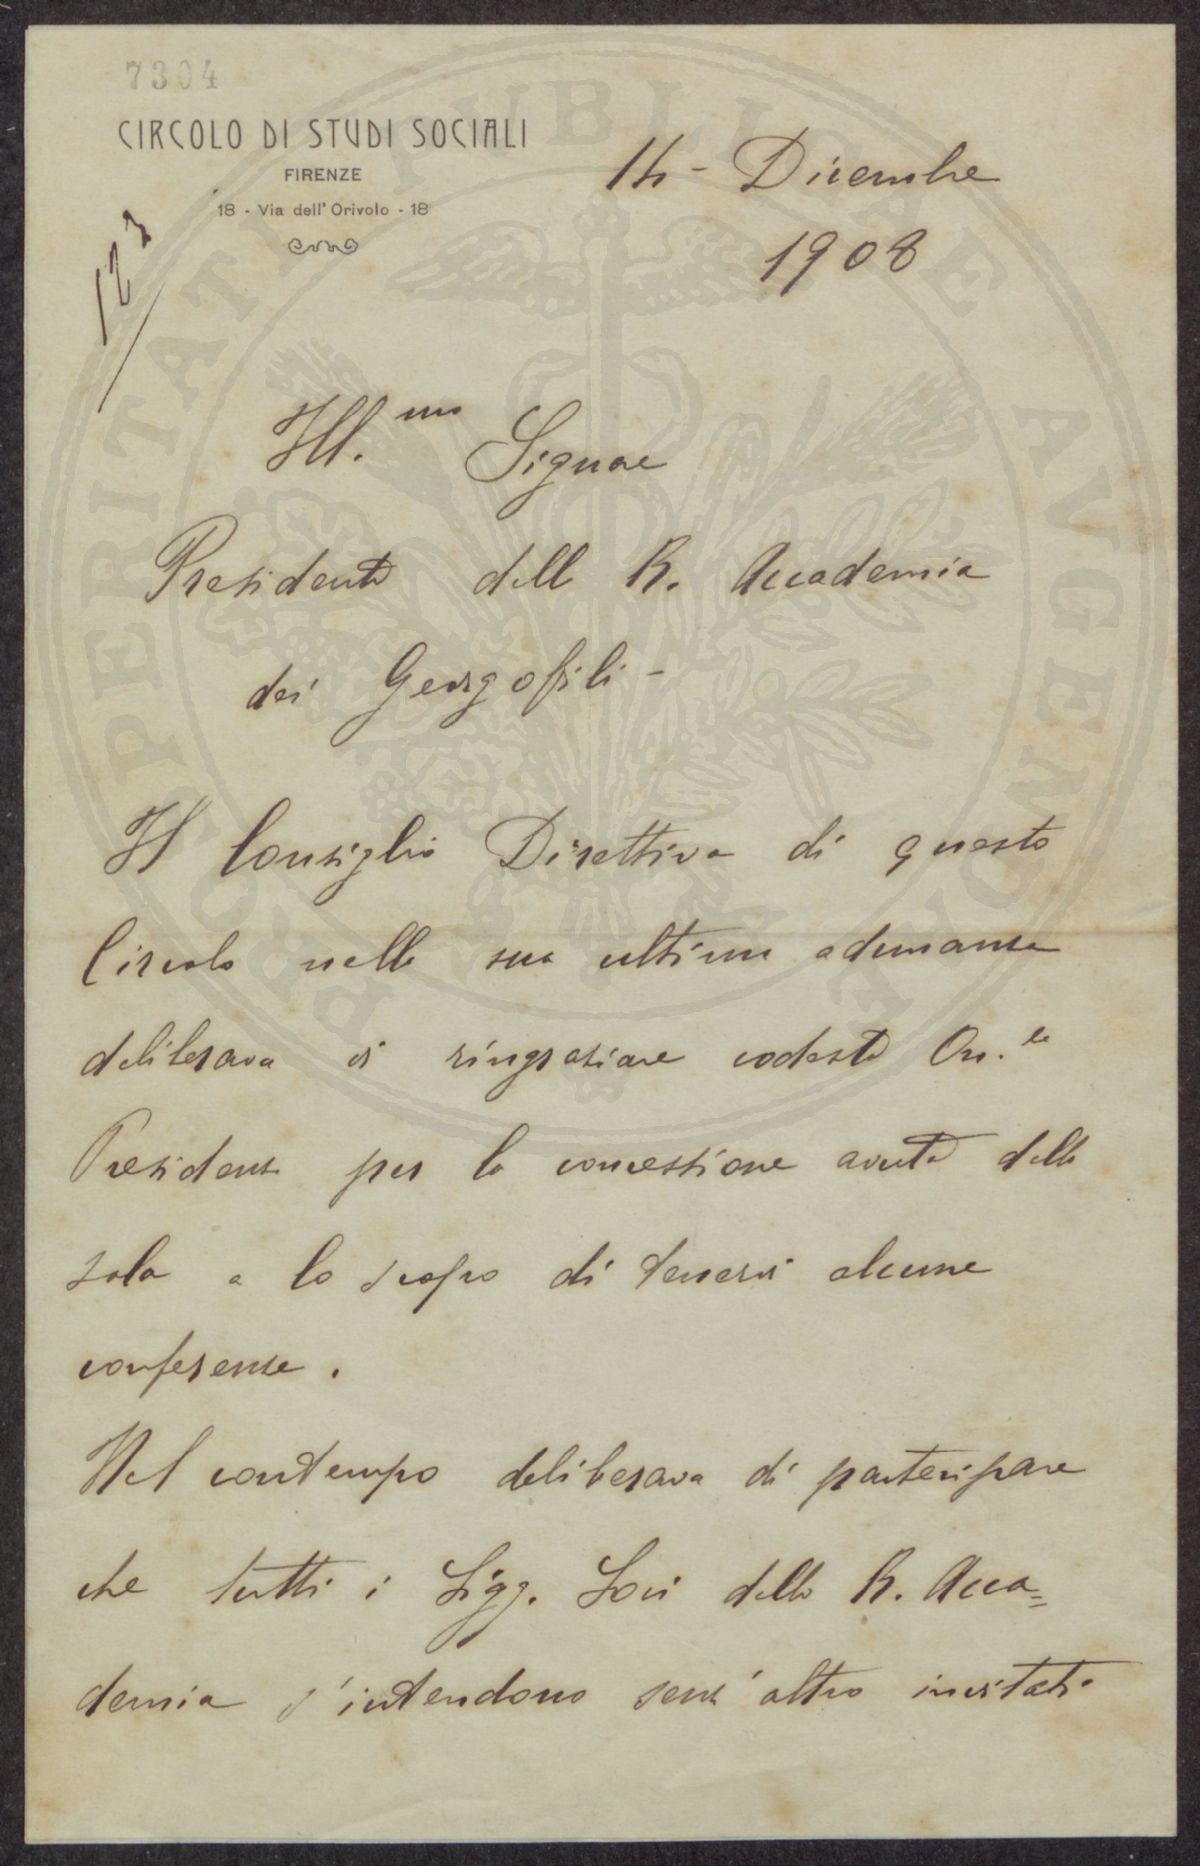 7304
CIRCOLO DI STUDI SOCIALI
FIRENZE
18 - Via dell' Orivolo - 18
123
14 - Dicembre
1908
Ill.mo Signore
Presidente della R. Accademia
dei Georgofili -
Il Consiglio Direttivo di questo
Circolo nella sua ultima adunanza
deliberava di ringraziare codesta On.le
Presidenza per la concessione avuta della
sala a lo scopo di tenervi alcune
conferenze.
Nel contempo deliberava di partecipare
che tutti i Sigg. Soci della R. Acca=
demia s'intendono senz'altro invitati
PROSPERITATI PUBLICAE AVGENDAE